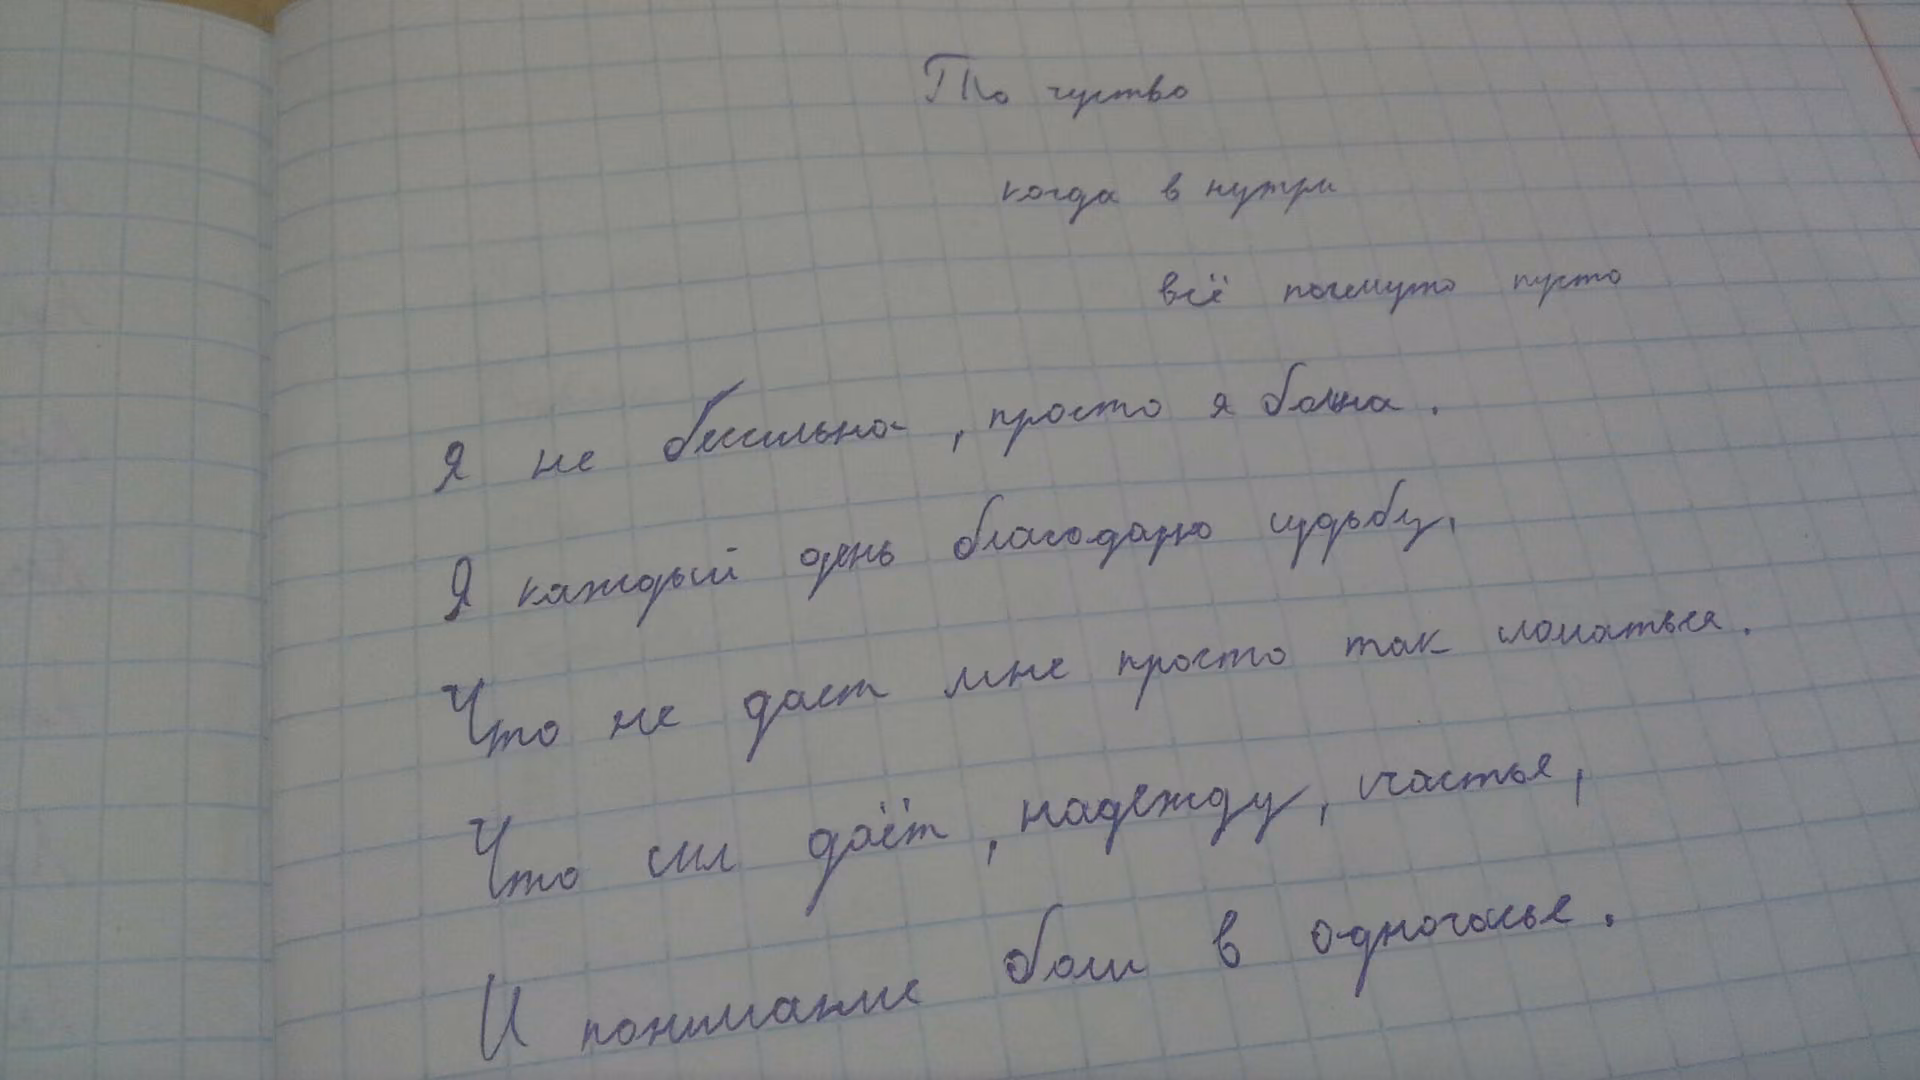 То чуство
когда в нутри
всё почемуто пусто
Я не бессильна, просто я больна.
Я каждый день благодарю судьбу,
Что не даст мне просто так сломаться.
Что сил даёт, надежду, счастье,
И понимание боли в одночасье.